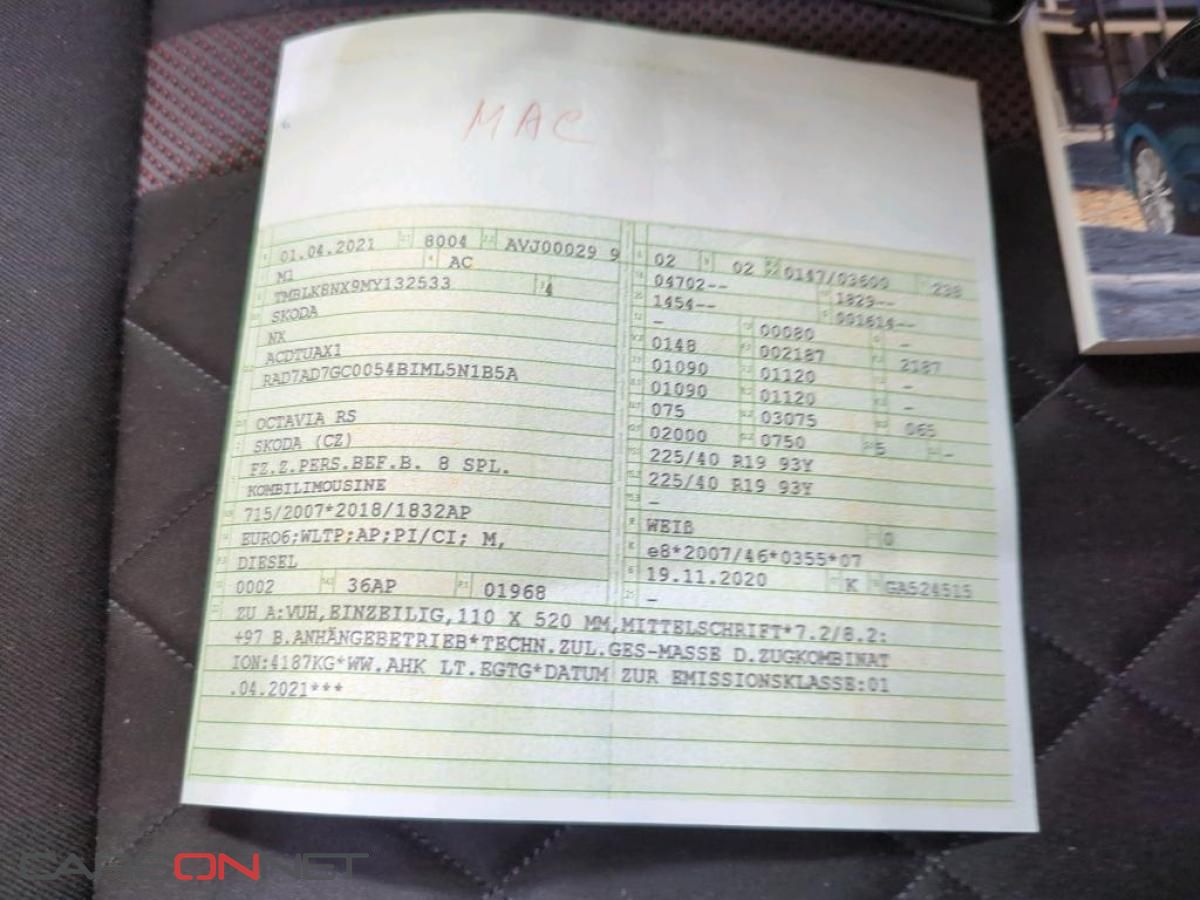 MAC
01.04.2021 8004 AVJ00029 9
M1 AC
TMBLK8NX9MY132533 4
SKODA
NX
ACDTUAX1
RAD7AD7GC0054BIML5N1B5A
OCTAVIA RS
SKODA (CZ)
FZ.Z.PERS.BEF.B. 8 SPL.
KOMBILIMOUSINE
715/2007*2018/1832AP
EURO6;WLTP;AP;PI/CI; M,
DIESEL
0002 36AP 01968
02 02 0147/03600 238
04702-- 1829--
1454-- 001614--
- 00080 -
0148 002187 2187
01090 01120 -
01090 01120 -
075 03075 065
02000 0750 5 -
225/40 R19 93Y
225/40 R19 93Y
-
WEIß 0
e8*2007/46*0355*07
19.11.2020 K GA524515
-
ZU A:VUH,EINZEILIG,110 X 520 MM,MITTELSCHRIFT*7.2/8.2:
+97 B.ANHÄNGEBETRIEB*TECHN.ZUL.GES-MASSE D.ZUGKOMBINAT
ION:4187KG*WW.AHK LT.EGTG*DATUM ZUR EMISSIONSKLASSE:01
.04.2021***
CARSONNET